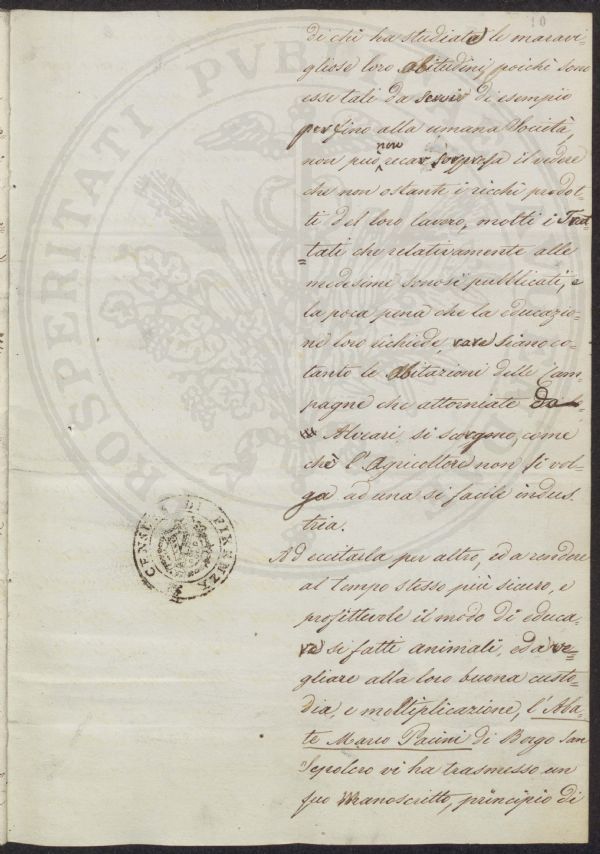 10
di chi ha studiate le maravi-
gliose loro abitudini, poichè sono
esse tali da servir di esempio
perfino alla umana Società,
non può però recar sorpresa il vedere
che non ostante i ricchi prodot-
ti del loro lavoro, molti i Trat-
=tati che relativamente alle
medesime sonosi pubblicati, e
la poca pena che la educazio-
ne loro richiede, rare siano co-
tanto le abitazioni delle Cam-
pagne che attorniate da
Alveari, si scorgono, come
chè l'Agricoltore non si vol-
ga ad una sì facile indus-
tria.
Ad eccitarla per altro, ed a rendere
al tempo stesso più sicuro, e
profittevole il modo di educa-
re sì fatti animali, ed a ve-
gliare alla loro buona custo-
dia, e moltiplicazione, l'Aba-
te Marco Pacini di Borgo San
Sepolcro vi ha trasmesso un
suo Manoscritto, principio di
PROSPERITATI PVBLICAE
DI FIRENZE